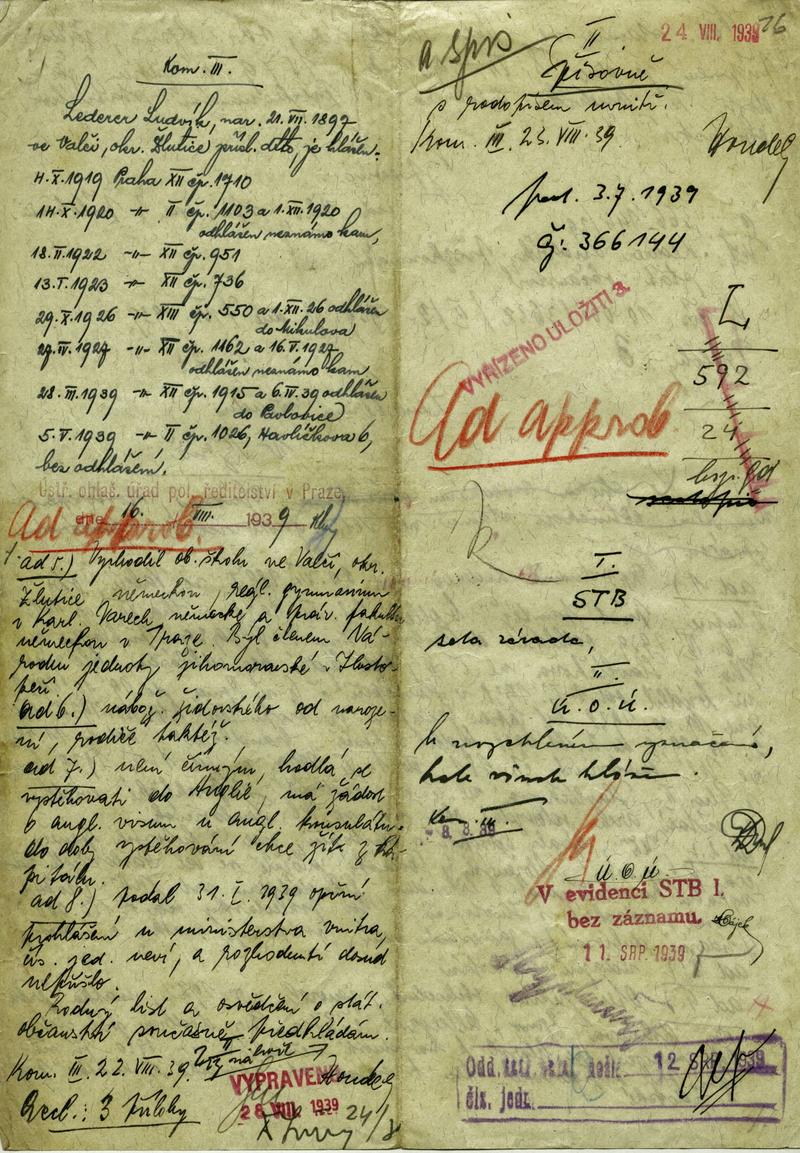 Kom. III.
Lederer Ludvík, nar. 21. VII. 1897
ve Valči, okr. Žlutice přísl. dtto, je hlášen:
4.X.1919 Praha XII čp. 1710
14.X.1920 -"- II čp. 1103 a 1.XII.1920
odhlášen neznámo kam,
18.II.1922 -"- XII čp. 951
13.I.1923 -"- XII čp. 736
29.X.1926 -"- XIII čp. 550 a 1.XII.26 odhlášen
do Mikulova
27.IV.1927 -"- XII čp. 1162 a 16.V.1927
odhlášen neznámo kam
28.III.1939 -"- XII čp. 1915 a 6.IV.39 odhlášen
do Pavlovice
5.V.1939 -"- II čp. 1026, Havlíčkova 6,
bez odhlášení.
Ústř. ohlaš. úřad pol. ředitelství v Praze,
dne 16. VIII. 1939
Ad approb.
ad 5.) Vychodil ob. školu ve Valči, okr.
Žlutice německou, reál. gymnasium
v Karl. Varech německé a práv. fakultu
německou v Praze. Byl členem Ná-
rodní jednoty jihomoravské v Husto-
peči.
ad 6.) nábož. židovského od naroze-
ní, rodiče taktéž.
ad 7.) není činným, hodlá se
vystěhovati do Anglie, má žádost
o angl. visum u angl. konsulátu,
do doby vystěhování chce žít z ka-
pitálu.
ad 8.) podal 31. I. 1939 opční
prohlášení u ministerstva vnitra,
čís. jed. neví, a rozhodnutí dosud
nepřišlo.
Rodný list a osvědčení o stát.
občanství současně předkládám.
Kom. III. 22. VIII. 39.
VYPRAVENO
28. VIII. 1939
3 přílohy
24/8
24 VIII. 1939
76
a spis
II
písovně
s rodopisem uvnitř.
Kom. III. 23. VIII. 39
3.7.1939
č: 366144
VYŘÍZENO ULOŽITI 3.
L
592
24
Ad approb
I.
STB
II.
ú.o.ú.
Kom. III.
8. 8. 39
ú.o.ú.
V evidenci STB I.
bez záznamu.
11. SRP. 1939
Odd.
12 SRP 1939
čís. jedn.